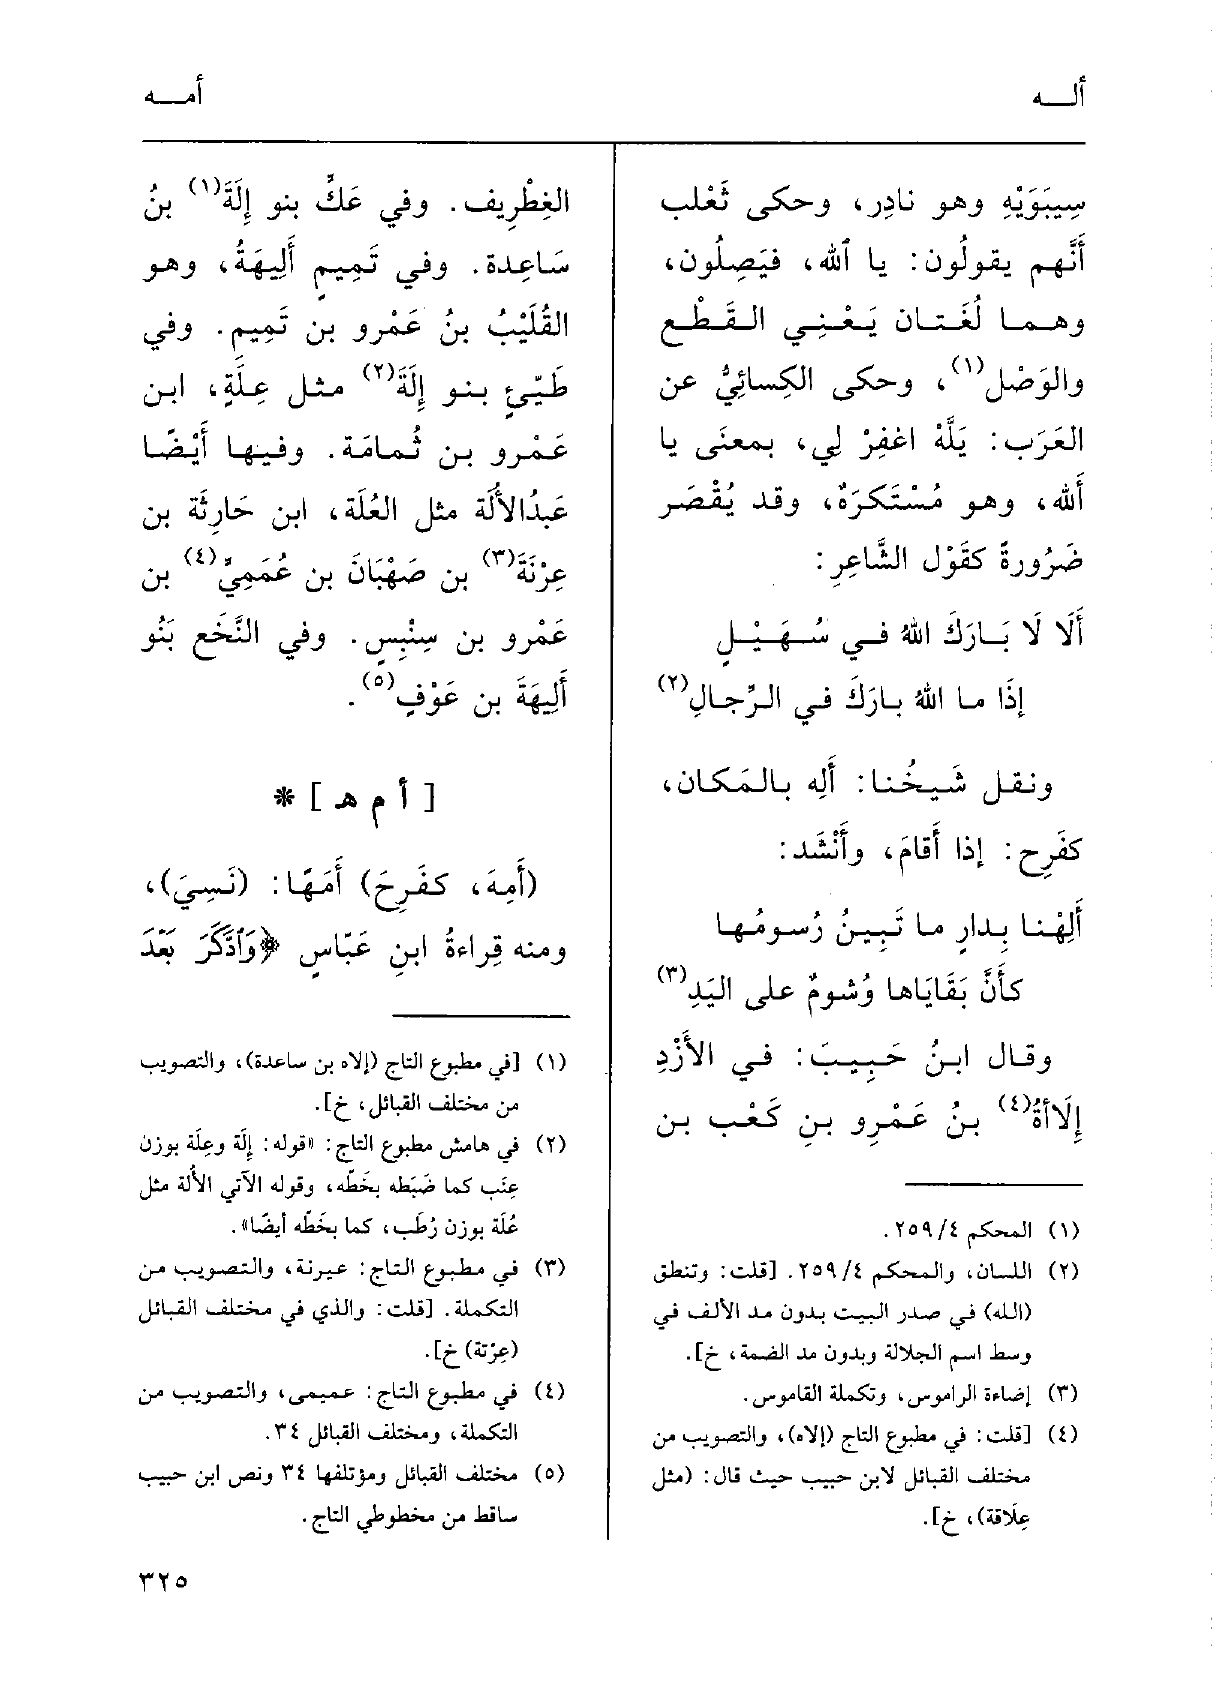 ألـــه
أمـــه
سِيبَوَيْهِ وهو نادِر، وحكى ثَعْلب
أَنَّهم يقولُون: يا ٱلله، فيَصِلُون،
وهـمـا لُغَـتـان يَـعْـنِـي القَطْـع
والوَصْل(١)، وحكى الكِسائِيُّ عن
العَرَب: يَلَّهْ اغفِرْ لِي، بمعنَى يا
أَلله، وهو مُسْتَكرَهٌ، وقد يُقْصَر
ضَرُورةً كقَوْل الشَّاعِرِ:
أَلَا لَا بَـارَكَ اللهُ فـي سُـهَـيْـلٍ
إذَا ما اللهُ بارَكَ في الرِّجالِ(٢)
ونقل شَيخُنا: أَلِه بالمَكان،
كفَرِح: إذا أَقامَ، وأَنْشَد:
أَلِهْنا بِدارٍ ما تَبِينُ رُسومُها
كأَنَّ بَقَايَاها وُشومٌ على اليَدِ(٣)
وقال ابنُ حَبِيبَ: في الأَزْدِ
إِلَاأةُ(٤) بنُ عَمْرِو بنِ كَعْب بن
(١) المحكم ٤/ ٢٥٩.
(٢) اللسان، والمحكم ٤/ ٢٥٩. [قلت: وتنطق
(الله) في صدر البيت بدون مد الألف في
وسط اسم الجلالة وبدون مد الضمة، خ].
(٣) إضاءة الراموس، وتكملة القاموس.
(٤) [قلت: في مطبوع التاج (إلاه)، والتصويب من
مختلف القبائل لابن حبيب حيث قال: (مثل
عِلَاقة)، خ].
الغِطْرِيف. وفي عَكٍّ بنو إِلَةَ(١) بنُ
سَاعِدة. وفي تَمِيمٍ أَلِيهَةُ، وهو
القُلَيْبُ بنُ عَمْرو بن تَمِيم. وفي
طَيِّئٍ بنو إِلَةَ(٢) مثل عِلَةٍ، ابن
عَمْرو بن ثُمامَة. وفيها أَيْضًا
عَبدُالأُلَة مثل العُلَة، ابن حَارِثَة بن
عِزْنَة(٣) بن صَهْبَانَ بن عُمَمِيّ(٤) بن
عَمْرو بن سِنْبِس. وفي النَّخَع بَنُو
أَلِيهَة بن عَوْفٍ(٥).
[ أ م هـ ] *
(أَمِهَ، كفَرِحَ) أَمَهًا: (نَسِيَ)،
ومنه قِراءةُ ابنِ عَبَّاسٍ ﴿وَٱدَّكَرَ بَعْدَ
(١) [في مطبوع التاج (إلاه بن ساعدة)، والتصويب
من مختلف القبائل، خ].
(٢) في هامش مطبوع التاج: «قوله: إِلَة وعِلَة بوزن
عِنَب كما ضَبَطه بخَطّه، وقوله الآتي الأُلة مثل
عُلَة بوزن رُطَب، كما بخَطّه أيضًا».
(٣) في مطبوع التاج: عيرنة، والتصويب من
التكملة. [قلت: والذي في مختلف القبائل
(عِرْنة) خ].
(٤) في مطبوع التاج: عميمى، والتصويب من
التكملة، ومختلف القبائل ٣٤.
(٥) مختلف القبائل ومؤتلفها ٣٤ ونص ابن حبيب
ساقط من مخطوطي التاج.
٣٢٥